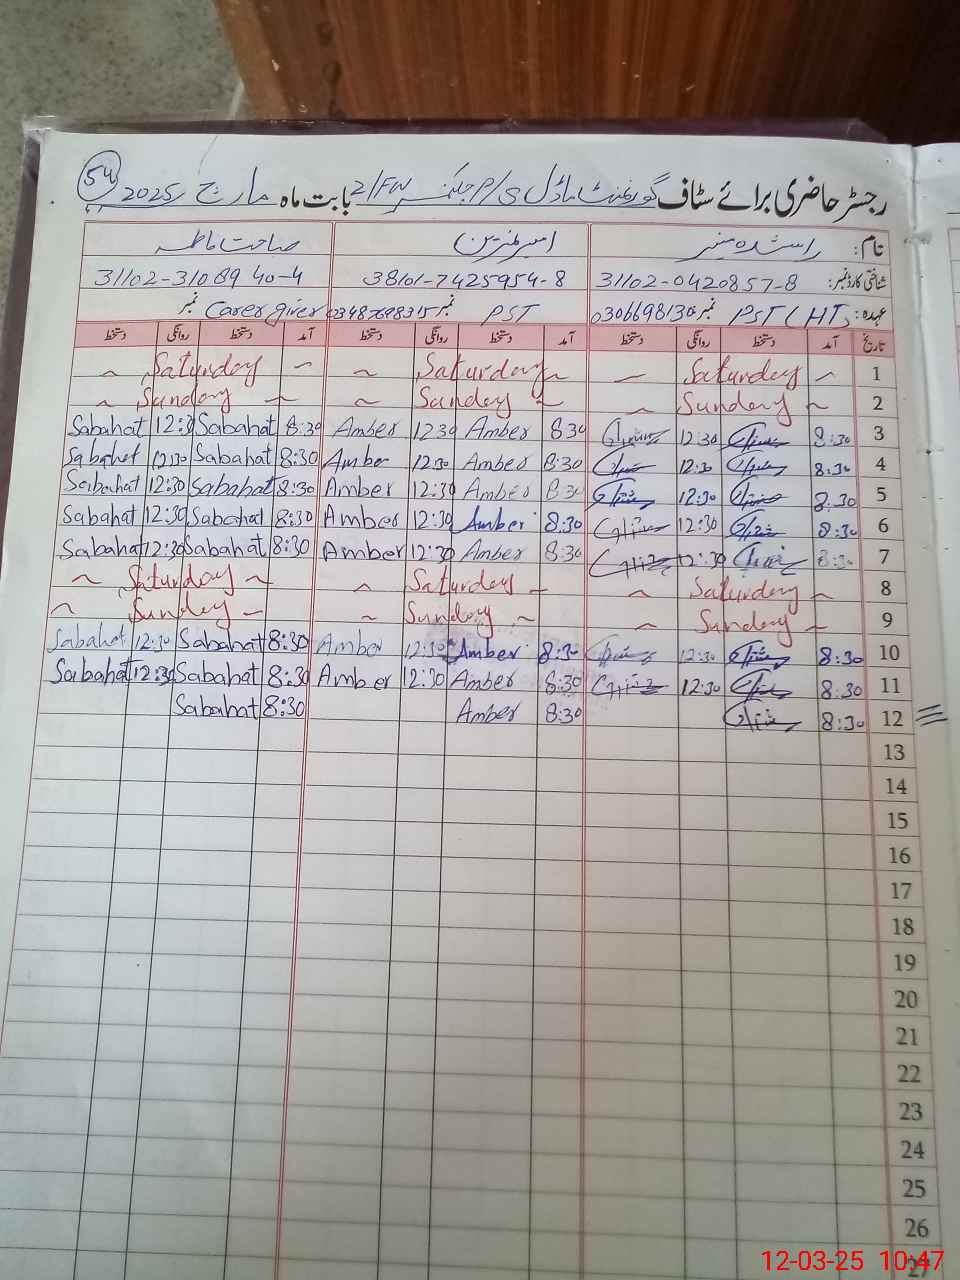 54
رجسٹر حاضری برائے سٹاف گورنمنٹ ماڈل پی/س 21/FW بابت ماہ مارچ 2025
نام: راشدہ منیر امبر نسرین صباحت فاطمہ
شناختی کارڈ نمبر: 31102-0420857-8 38101-7425954-8 31102-3108940-4
عہدہ: PST (HT) نمبر PST نمبر Carer giver نمبر
تاریخ آمد دستخط روانگی دستخط آمد دستخط روانگی دستخط آمد دستخط روانگی دستخط
1 Saturday Saturday Saturday
2 Sunday Sunday Sunday
3 8:30 12:30 8:30 Amber 12:30 Amber 8:30 Sabahat 12:30 Sabahat
4 8:30 12:30 8:30 Amber 12:30 Amber 8:30 Sabahat 12:30 Sabahat
5 8:30 12:30 8:30 Amber 12:30 Amber 8:30 Sabahat 12:30 Sabahat
6 8:30 12:30 8:30 Amber 12:30 Amber 8:30 Sabahat 12:30 Sabahat
7 8:30 12:30 8:30 Amber 12:30 Amber 8:30 Sabahat 12:30 Sabahat
8 Saturday Saturday Saturday
9 Sunday Sunday Sunday
10 8:30 12:30 8:30 Amber 12:30 Amber 8:30 Sabahat 12:30 Sabahat
11 8:30 12:30 8:30 Amber 12:30 Amber 8:30 Sabahat 12:30 Sabahat
12 8:30 8:30 Amber 8:30 Sabahat
13
14
15
16
17
18
19
20
21
22
23
24
25
26
27
12-03-25 10:47